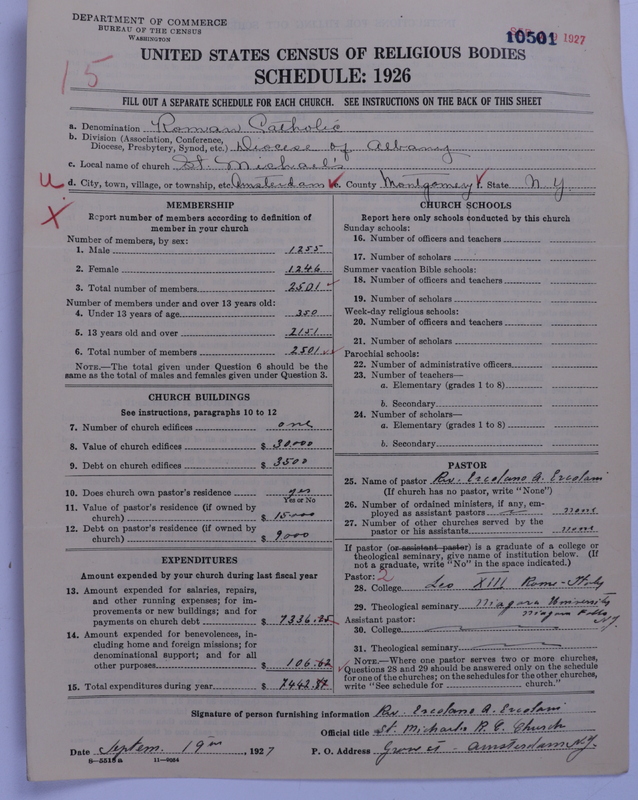 DEPARTMENT OF COMMERCE
BUREAU OF THE CENSUS
WASHINGTON
10501 1927
15
UNITED STATES CENSUS OF RELIGIOUS BODIES
SCHEDULE: 1926
FILL OUT A SEPARATE SCHEDULE FOR EACH CHURCH. SEE INSTRUCTIONS ON THE BACK OF THIS SHEET
a. Denomination Roman Catholic
b. Division (Association, Conference,
Diocese, Presbytery, Synod, etc.) Diocese of Albany
c. Local name of church St. Michael's
d. City, town, village, or township, etc. Amsterdam e. County Montgomery f. State N.Y.
X
MEMBERSHIP
Report number of members according to definition of
member in your church
Number of members, by sex:
1. Male 1255
2. Female 1246
3. Total number of members 2501
Number of members under and over 13 years old:
4. Under 13 years of age 350
5. 13 years old and over 2151
6. Total number of members 2501
NOTE.—The total given under Question 6 should be the
same as the total of males and females given under Question 3.
CHURCH BUILDINGS
See instructions, paragraphs 10 to 12
7. Number of church edifices one
8. Value of church edifices $ 30.000
9. Debt on church edifices $ 3500
10. Does church own pastor's residence yes
Yes or No
11. Value of pastor's residence (if owned by
church) $ 15000
12. Debt on pastor's residence (if owned by
church) $ 9000
EXPENDITURES
Amount expended by your church during last fiscal year
13. Amount expended for salaries, repairs,
and other running expenses; for im-
provements or new buildings; and for
payments on church debt $ 7336.25
14. Amount expended for benevolences, in-
cluding home and foreign missions; for
denominational support; and for all
other purposes $ 106.62
15. Total expenditures during year $ 7442.87
CHURCH SCHOOLS
Report here only schools conducted by this church
Sunday schools:
16. Number of officers and teachers
17. Number of scholars
Summer vacation Bible schools:
18. Number of officers and teachers
19. Number of scholars
Week-day religious schools:
20. Number of officers and teachers
21. Number of scholars
Parochial schools:
22. Number of administrative officers
23. Number of teachers—
a. Elementary (grades 1 to 8)
b. Secondary
24. Number of scholars—
a. Elementary (grades 1 to 8)
b. Secondary
PASTOR
25. Name of pastor Rev. Ercolano A. Ercolani
(If church has no pastor, write "None")
26. Number of ordained ministers, if any, em-
ployed as assistant pastors none
27. Number of other churches served by the
pastor or his assistants none
If pastor (or assistant pastor) is a graduate of a college or
theological seminary, give name of institution below. (If
not a graduate, write "No" in the space indicated.)
Pastor: 2
28. College Leo XIII Rome - Italy
29. Theological seminary Niagara University
Niagara Falls
N.Y.
Assistant pastor:
30. College
31. Theological seminary
NOTE.—Where one pastor serves two or more churches,
Questions 28 and 29 should be answered only on the schedule
for one of the churches; on the schedules for the other churches,
write "See schedule for church."
Signature of person furnishing information Rev. Ercolano A. Ercolani
Official title St. Michaels R. C. Church
Date Septem. 19, 1927 P. O. Address Grove st - Amsterdam N.Y.
8—5513a 11—9664